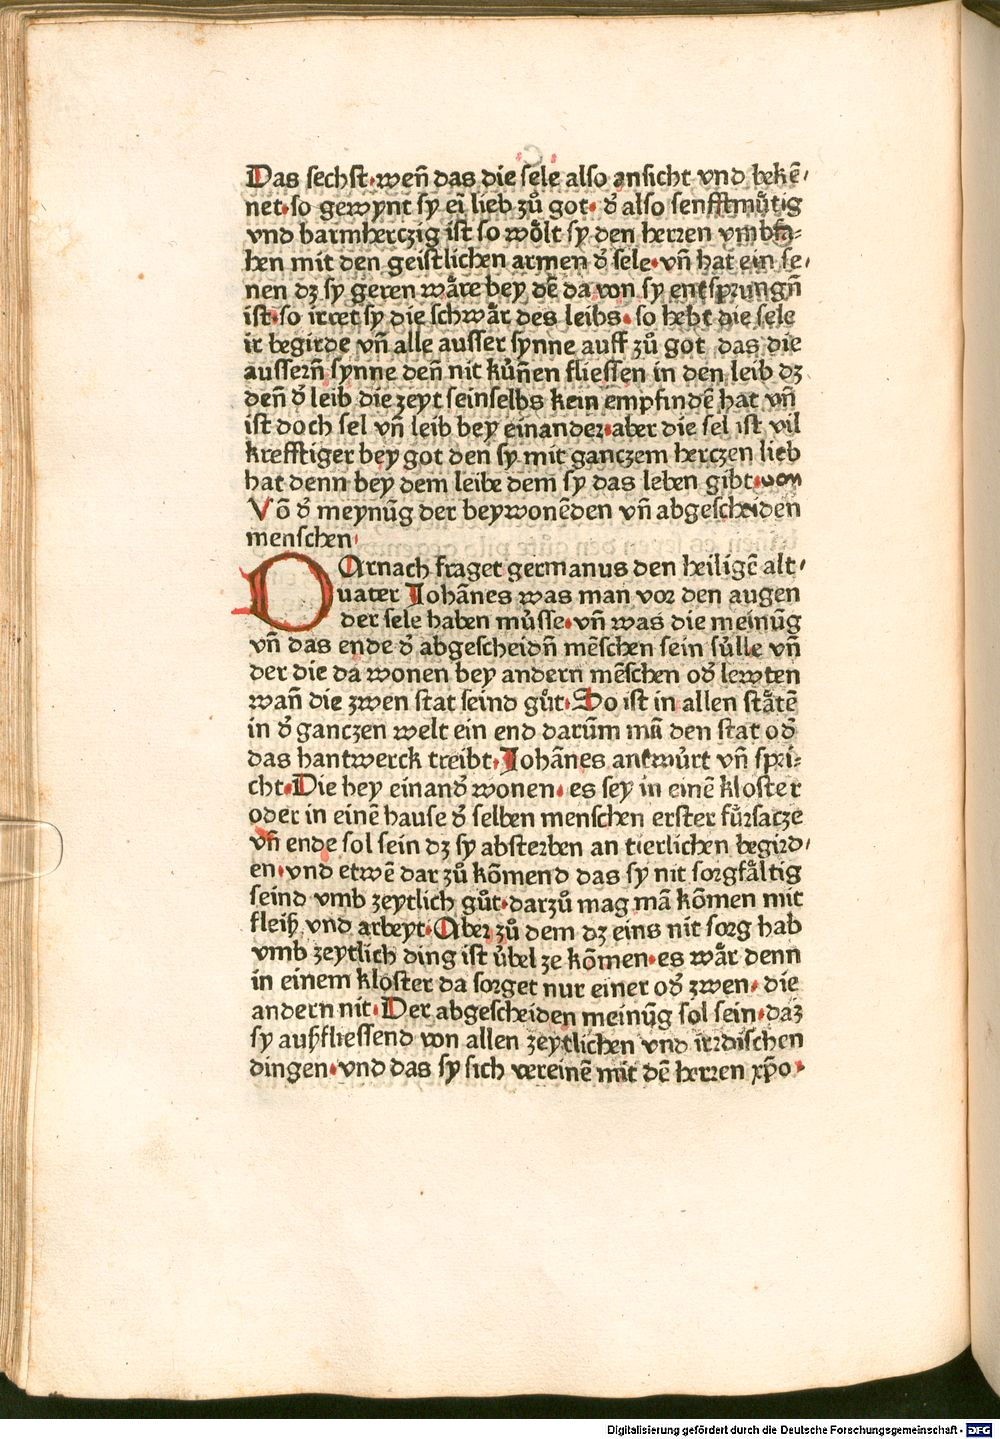 Das sechst·wen̄ das die sele also ansicht vnd bekē⸗
net·so gewynt sy eī lieb zů got· d̕ also senfftmuͤtig
vnd barmherczig ist so woͤlt sy den herren vmbfa⸗
hen mit den geistlichen armen d̕ sele·vn̄ hat ein se⸗
nen dz sy geren waͤre bey dē da von sy entsprungn̄
ist·so irret sy die schwaͤr des leibs·so hebt die sele
ir begirde vn̄ alle ausser synne auff zů got das die
aussern̄ synne den̄ nit kün̄en fliessen in den leib dz
den̄ d̕ leib die zeyt seinselbs kein empfindē hat vn̄
ist doch sel vn̄ leib bey einander·aber die sel ist vil
krefftiger bey got den sy mit ganczem herczen lieb
hat denn bey dem leibe dem sy das leben gibt·von
Vō d̕ meynūg der beywonēden vn̄ abgescheiden
menschen
DArnach fraget germanus den heiligē alt⸗
uater Johānes was man vor den augen
der sele haben müsse·vn̄ was die meinūg
vn̄ das ende d̕ abgescheidn̄ mēschen sein sülle vn̄
der die da wonen bey andern mēschen od̕ lewten
wan̄ die zwen stat seind gůt·So ist in allen staͤtē
in d̕ ganczen welt ein end darūm mā den stat od̕
das hantwerck treibt·Johānes antwürt vn̄ spri⸗
cht·Die bey einand̕ wonen·es sey in einē kloster
oder in einē hause d̕ selben menschen erster fürsacze
vn̄ ende sol sein dz sy absterben an tierlichen begird⸗
en·vnd etwē dar zů kōmend das sy nit sorgfaͤltig
seind vmb zeytlich gůt·darzů mag mā kōmen mit
fleiß vnd arbeyt·Aber zů dem dz eins nit sorg hab
vmb zeytlich ding ist übel ze kōmen·es waͤr denn
in einem kloster da sorget nur einer od̕ zwen·die
andern nit·Der abgescheiden meinūg sol sein·daz
sy außfliessend von allen zeytlichen vnd irrdischen
dingen·vnd das sy sich vereinē mit dē herren xp̄o·
Digitalisierung gefördert durch die Deutsche Forschungsgemeinschaft - DFG